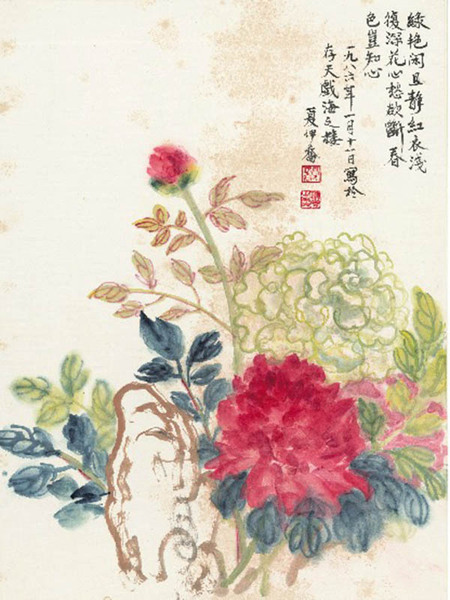 綠艷闲且靜紅衣淺
復深花心愁欲斷春
色豈知心
一九八六年一月十一日寫於
存天戲海之樓
夏伊喬